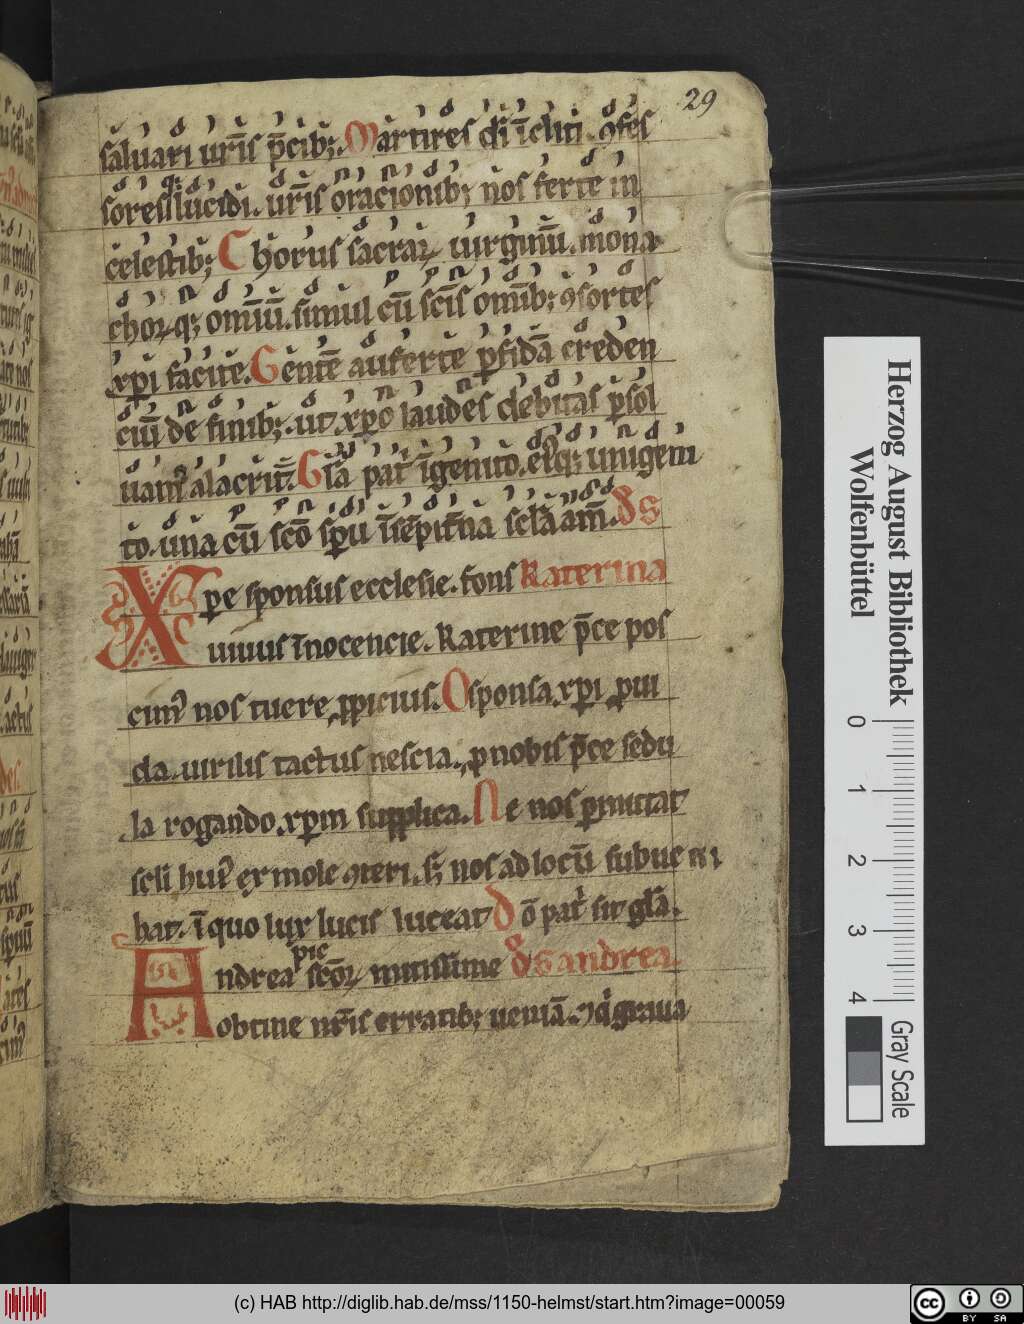 29
saluari ur̄is p̄cib; Martires dī īcliti ꝯfes
soresq; lucidi. ur̄is oracionib; nos ferte in
celestib; Chorus sacraꝝ uirginū. mona
choꝝ q; omīū. simul cū scīs omīb; ꝯsortes
xpi facite. Gentē auferte ꝑfidā creden
ciū de finib;. ut xpo laudes debitas ꝑsol
uam᷒ alacrit̄. Glā patͥ īgenito. eiꝙ; unigeni
to. una cū scō sp̄u ī sēpit̄na sclā am̄. De S
Xpe sponsus ecclesie. fons Katerina
uiuus īnocencie. Katerine p̄ce pos
cim᷒ nos tuere ꝓpicius. O sponsa xpi ꝓui
da. uirilis tactus nescia. ꝓ nobis p̄ce sedu
la rogando xpm supplica. Ne nos ꝑmittat
scli hui᷒ ex mole ꝯteri. sꝫ nos ad locū subue
hat. ī quo lux lucis luceat D ō patͥ sit glā.
Andrea pie scōꝝ mitissime De S andrea.
obtine nr̄is erratib; ueniā. ⁊ qͥ graua
Herzog August Bibliothek
Wolfenbüttel
0 1 2 3 4
Gray Scale
(c) HAB http://diglib.hab.de/mss/1150-helmst/start.htm?image=00059
cc BY SA